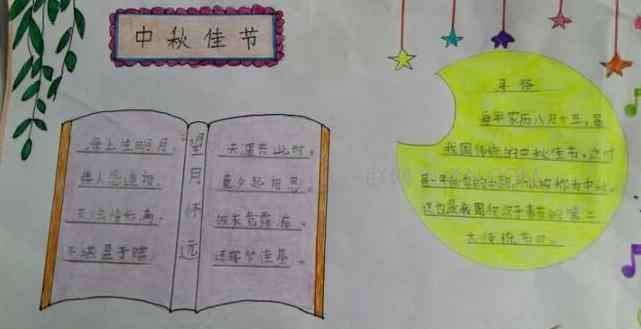 中秋佳节
望月怀远
海上生明月,
情人怨遥夜,
不堪盈手赠
天涯共此时。
竟夕起相思。
还寝梦佳期。
习俗
每年农历八月十五,是
我国传统的中秋佳节。这时
是一年秋季的中期,所以被称为中秋。
这也是我国仅次于春节的第二
大传统节日。